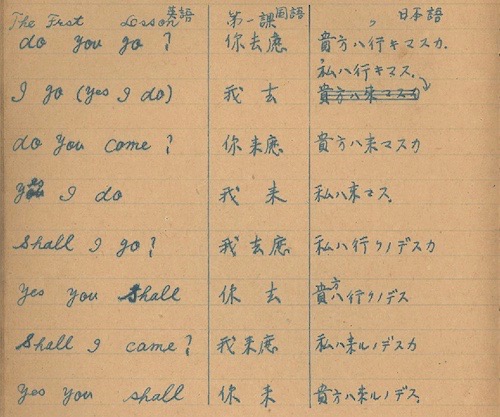 The First Lesson 英語 第一課 国語 , 日本語
do you go? 你去應 貴方ハ行キマスカ.
私ハ行キマス.
I go (Yes I do) 我去 貴方ハ来マスカ
do you come? 你来應 貴方ハ来マスカ
Yes I do 我来 私ハ来マス.
Shall I go? 我去應 私ハ行クノデスカ
Yes you shall 你去 貴方ハ行クノデス
Shall I came? 我来應 私ハ来ルノデスカ
Yes you shall 你来 貴方ハ来ルノデス.